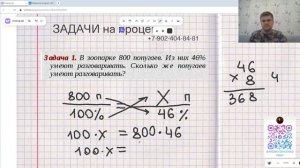 ЗАДАЧИ на процен
+7-902-404-84-81
Задача 1. В зоопарке 800 попугаев. Из них 46%
умеют разговаривать. Сколько же попугаев
умеют разговаривать?
800 п
100%
X п
46%
100·x = 800·46
100·x =
46
× 8
368
4